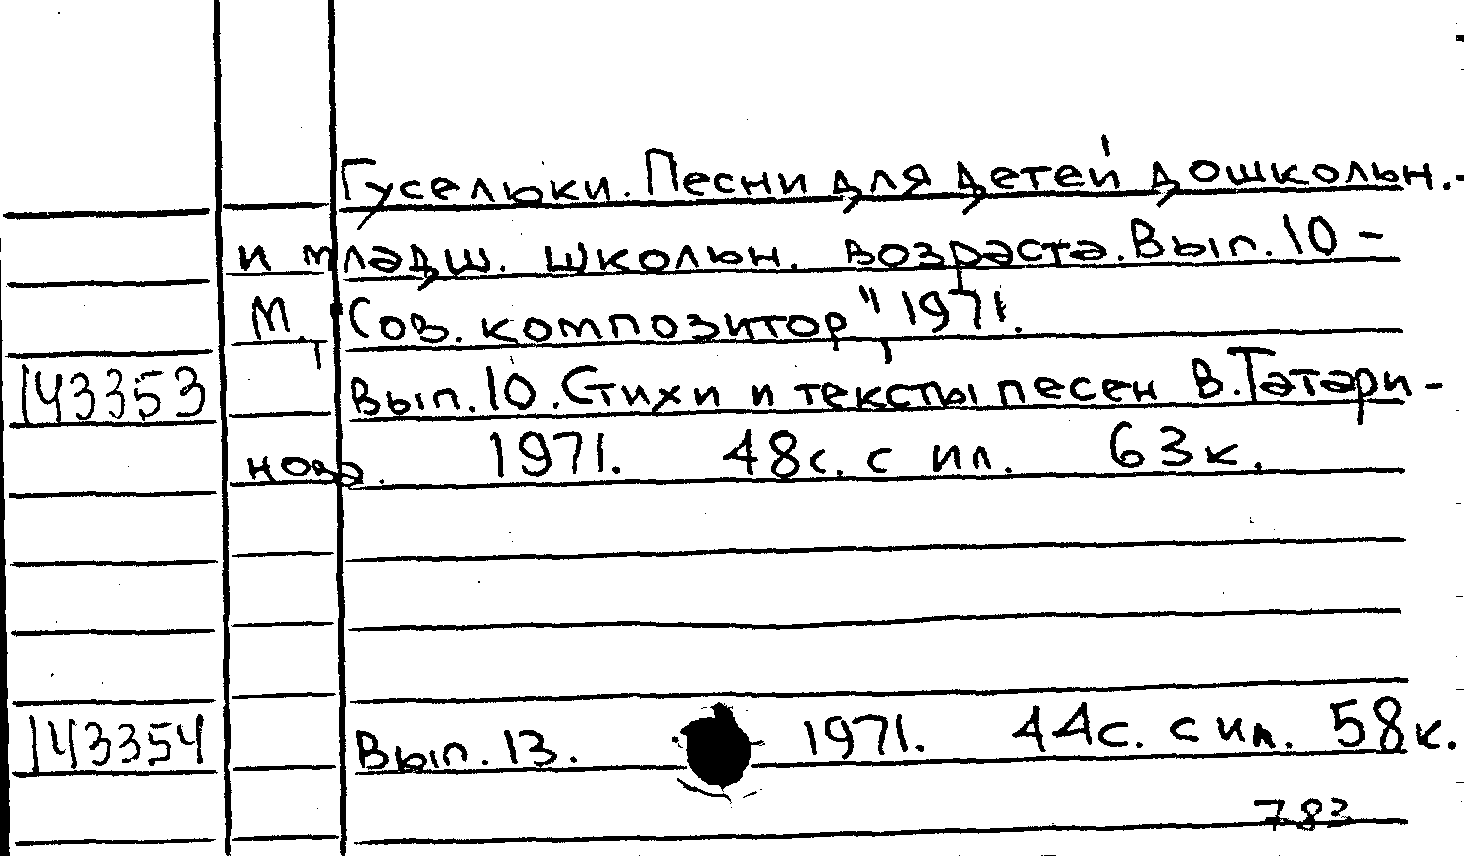 Гусельки. Песни для детей дошкольн.
и младш. школьн. возраста. Вып. 10 -
М., "Сов. композитор" 1971.
143353 Вып. 10. Стихи и тексты песен В. Татари-
нова. 1971. 48с. с ил. 63к.
143354 Вып. 13. 1971. 44с. с ил. 58к.
783